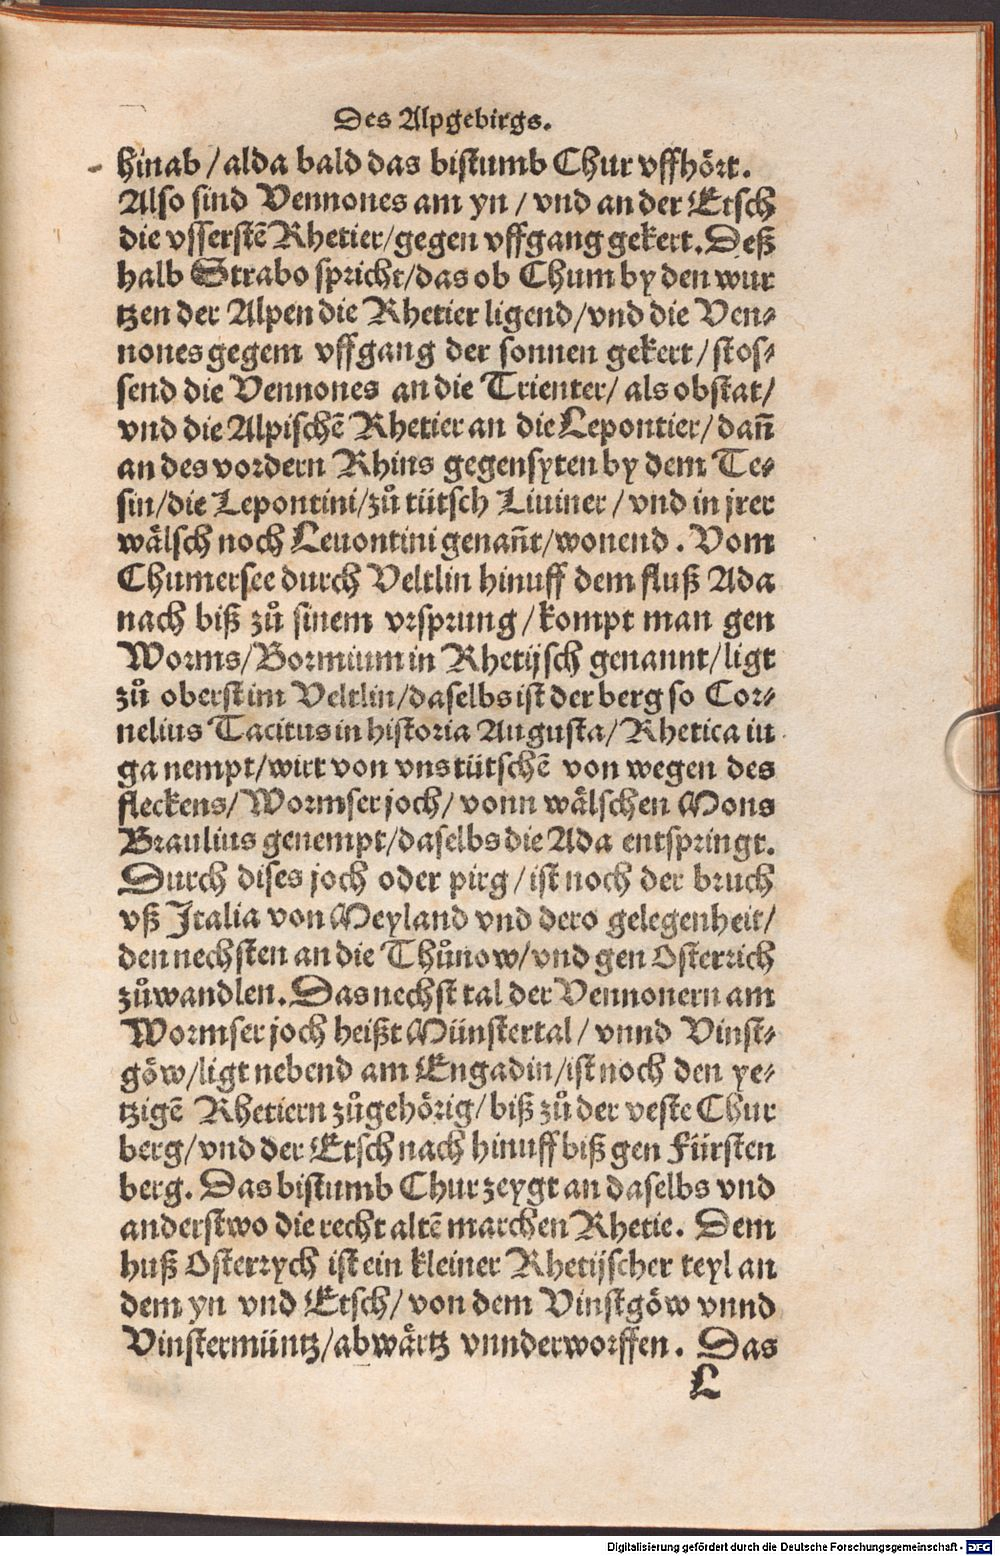 Des Alpgebirgs.
hinab / alda bald das bistumb Chur vffhört.
Also sind Vennones am yn / vnd an der Etsch
die vsserstē Rhetier/gegen vffgang gekert. Deß
halb Strabo spricht/das ob Chum by den wur
tzen der Alpen die Rhetier ligend/vnd die Ven⸗
nones gegem vffgang der sonnen gekert/stos⸗
send die Vennones an die Trienter/ als obstat/
vnd die Alpischē Rhetier an die Lepontier/ dañ
an des vordern Rhins gegensyten by dem Te⸗
sin/die Lepontini/zů tütsch Liuiner / vnd in jrer
wälsch noch Leuontini genañt/wonend . Vom
Chumersee durch Veltlin hinuff dem fluß Ada
nach biß zů sinem vrsprung /kompt man gen
Worms/Bormium in Rhetijsch genannt/ligt
zů oberst im Veltlin/daselbs ist der berg so Cor⸗
nelius Tacitus in historia Augusta/ Rhetica iu
ga nempt/wirt von vns tütschē von wegen des
fleckens/ Wormser joch/ vonn wälschen Mons
Braulius genempt/daselbs die Ada entspringt.
Durch dises joch oder pirg / ist noch der bruch
vß Italia von Meyland vnd dero gelegenheit/
den nechsten an die Thůnow/vnd gen Osterrich
zůwandlen. Das nechst tal der Vennonern am
Wormser joch heißt Münstertal / vnnd Vinst⸗
göw/ligt nebend am Engadin/ist noch den ye⸗
tzigē Rhetiern zůgehörig/ biß zů der veste Chur
berg/vnd der Etsch nach hinuff biß gen Fürsten
berg. Das bistumb Chur zeygt an daselbs vnd
anderstwo die recht altē marchen Rhetie. Dem
huß Osterrych ist ein kleiner Rhetijscher teyl an
dem yn vnd Etsch/ von dem Vinstgöw vnnd
Vinstermüntz/abwärtz vnnderworffen. Das
L
Digitalisierung gefördert durch die Deutsche Forschungsgemeinschaft - DFG